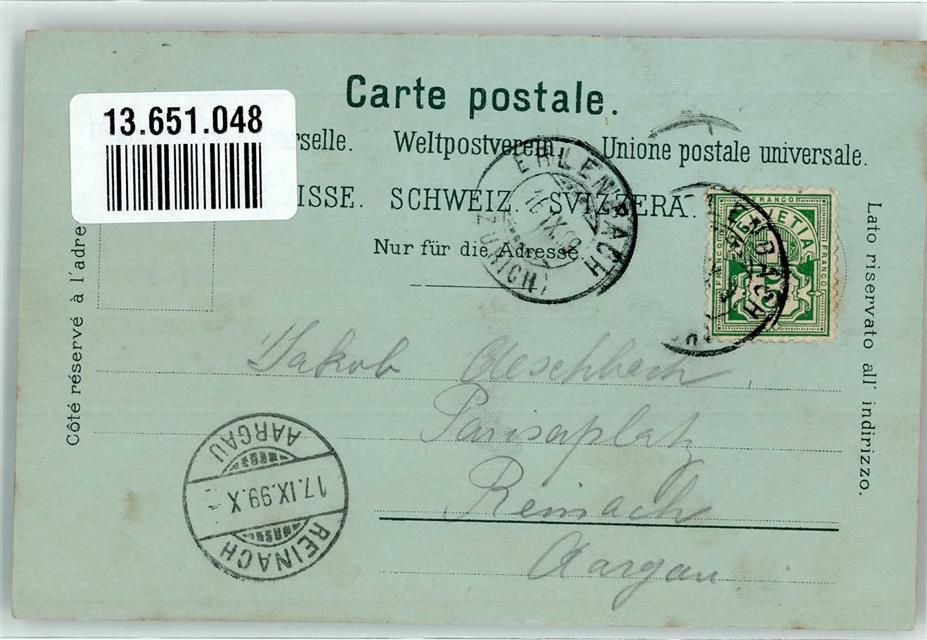 Carte postale.
13.651.048
rselle. Weltpostverein. Unione postale universale.
ISSE. SCHWEIZ. SVIZZERA.
Nur für die Adresse.
Côté réservé à l'adre
Lato riservato all' indirizzo.
ERLENBACH
16.IX.9
(ZÜRICH)
FRANCO
HELVETIA
FRANCO
FRANCO
LENBACH
Jakob Aeschbach.
Pariserplatz
Reinach
Aargau
AARGAU
17.IX.99.X
REINACH